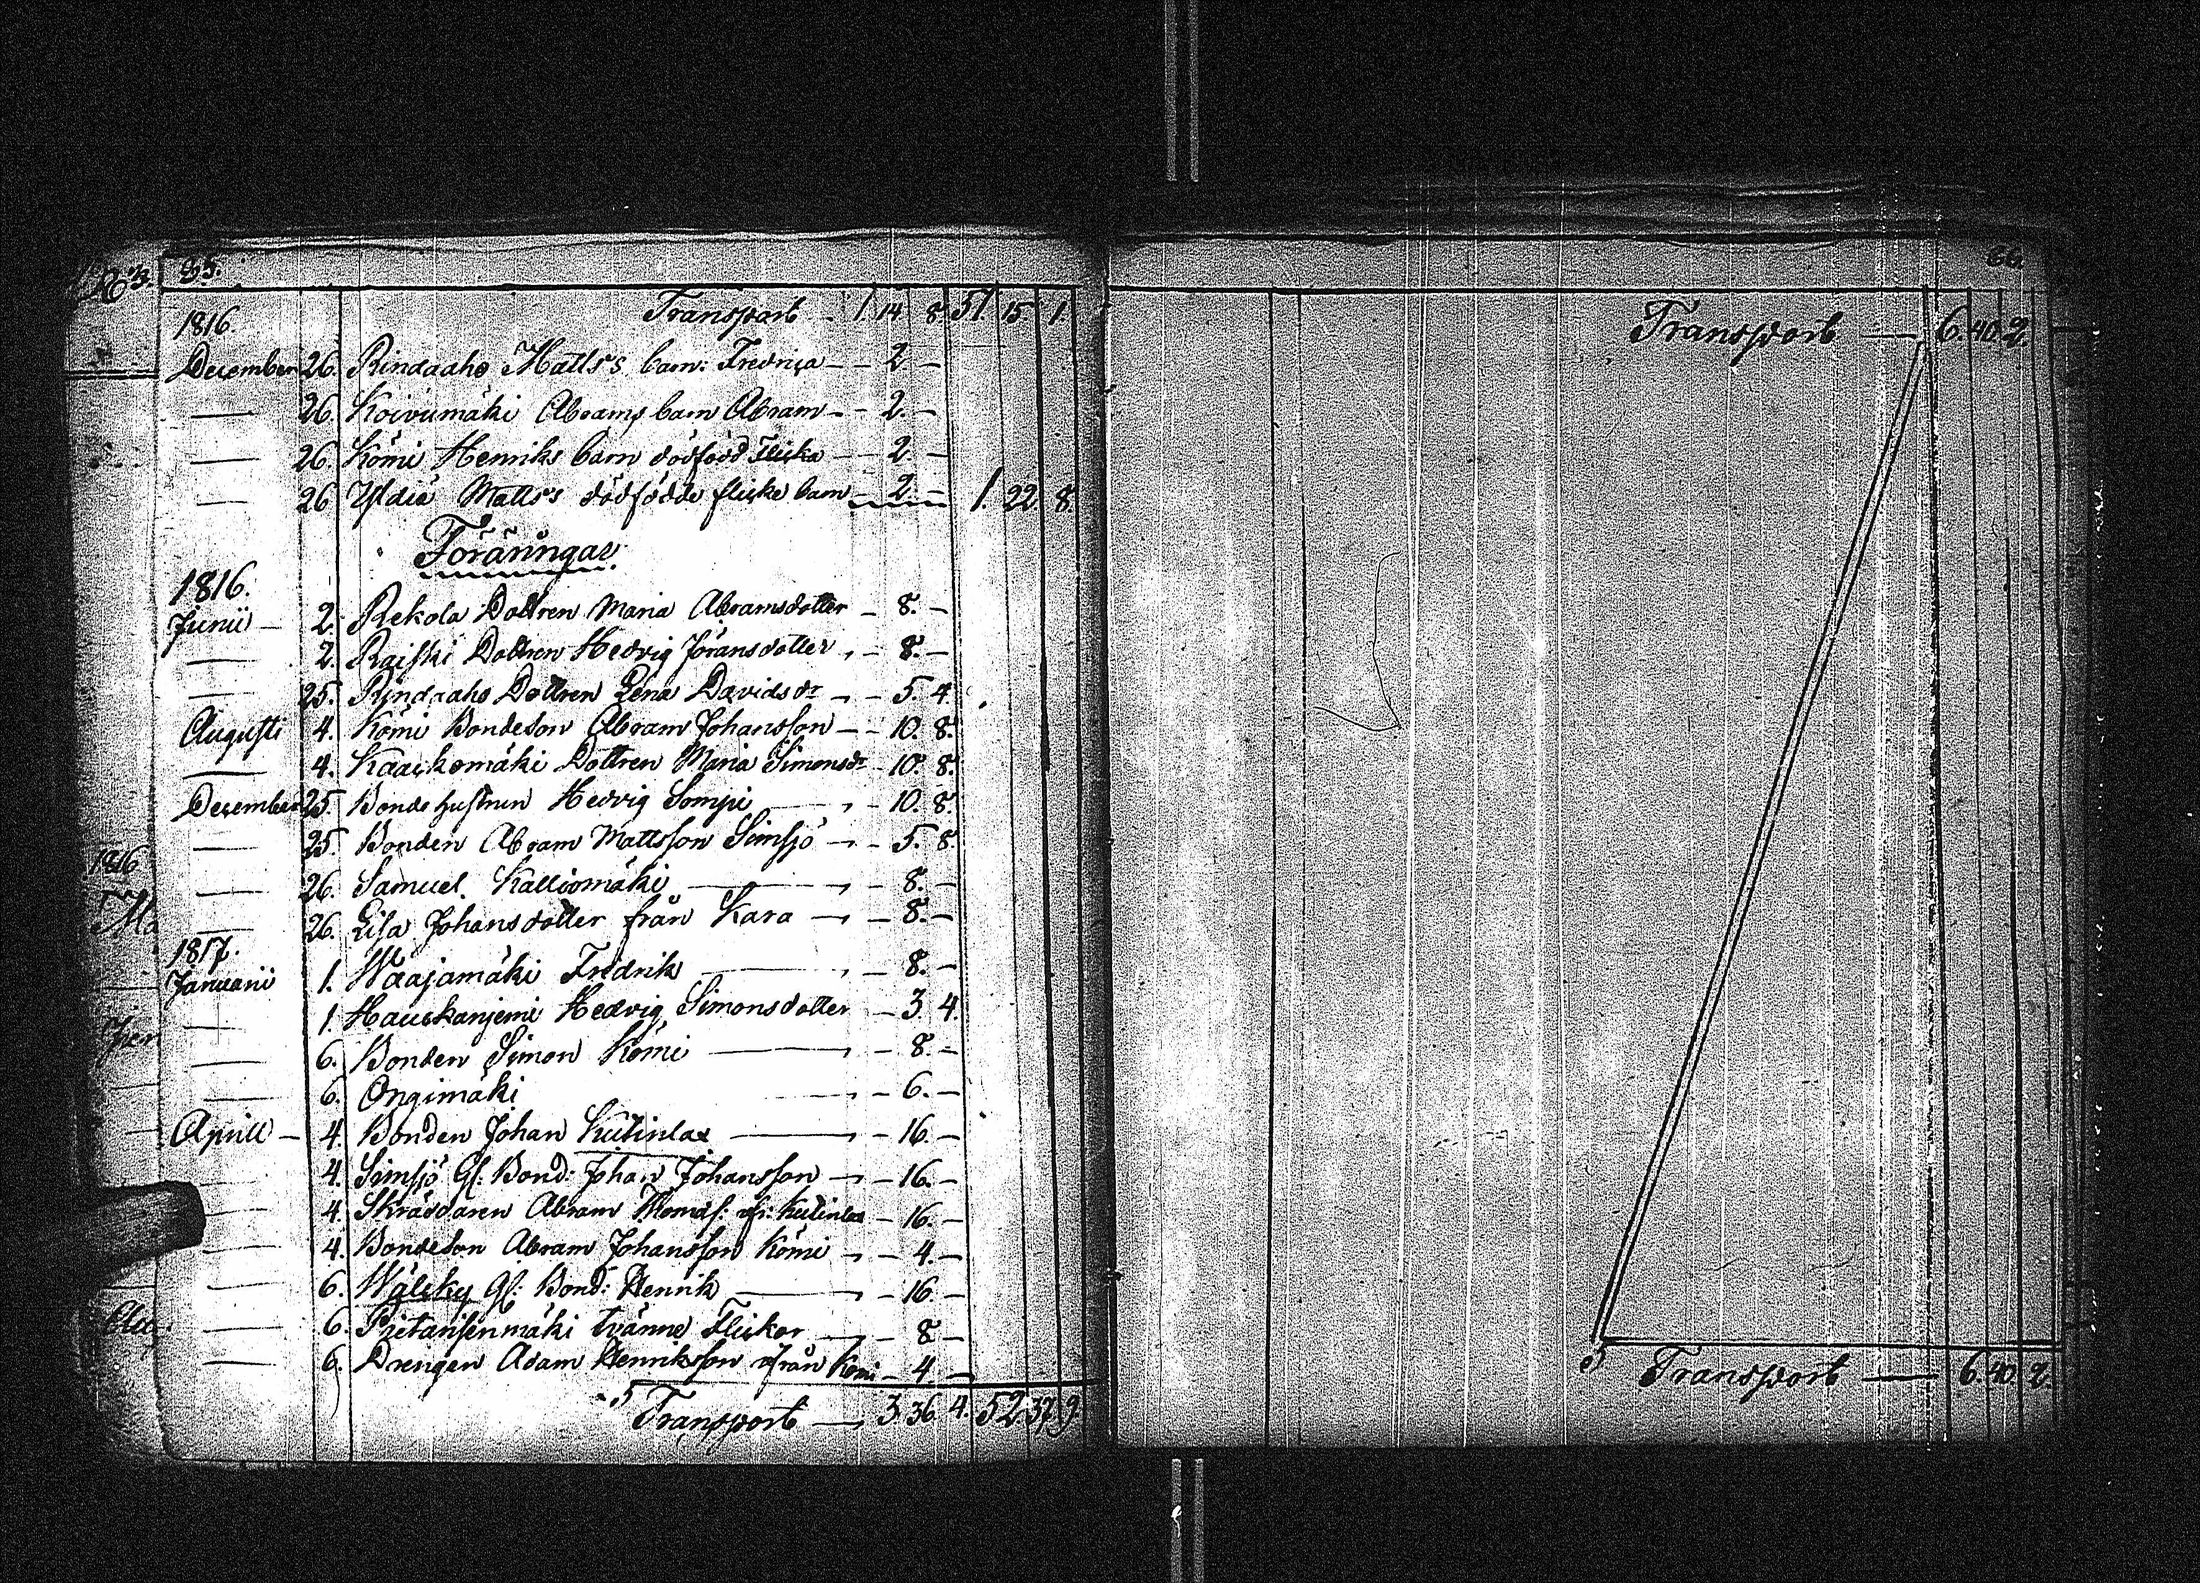 35.
1816. Transport - 1. 14 8 51. 15. 1.
December 26. Rindaaho Matts's barn: Fredrica - - 2. -
26. Koivumäki Abrams barn Abram - - 2. -
26. Kömi Henriks barn dödfödd Flicka - 2. -
26 Matts's dödfödde flicke barn - 2. - 1. 22. 8.
Föräringar
1816.
Junii - 2. Rekola Dottren Maria Abramsdotter - 8. -
2. Raiski Dottren Hedvig Jöransdotter - 8. -
25. Rindaaho Dottren Lena Davidsdr - - 5. 4.
Augusti 4. Kömi Bondeson Abram Johansson - - 10. 8.
4. Kaackomäki Dottren Maria Simonsdr - 10. 8.
December 25. Bondehustrun Hedvig Sompi - - 10. 8.
25. Bonden Abram Mattsson Simsjö - - 5. 8.
26. Samuel Kalliomäki - - 8. -
26. Lisa Johansdotter från Kara - - 8. -
1817.
Januarii 1. Waajamäki Fredrik - - 8. -
1. Hauckanjemi Hedvig Simonsdotter - 3. 4.
6. Bonden Simon Kömi - - 8. -
6. Ongimäki - - 6. -
Aprill - 4. Bonden Johan Kutinlax - - 16. -
4. Simsjö Gl: Bond: Johan Johansson - - 16. -
4. Skräddaren Abram Thomas: fr: Kutinlax - 16. -
4. Bondeson Abram Johansson Kömi - - 4. -
6. Wälsky Gl: Bond: Henrik - - 16. -
6. Pjetansenmäki tvänne Flickor - - 8. -
6. Drengen Adam Henriksson från Kömi - 4 -
Transport - 3. 36. 4. 52. 37. 9.
1816
66.
Transport - 6. 40. 2.
Transport - 6. 40. 2.